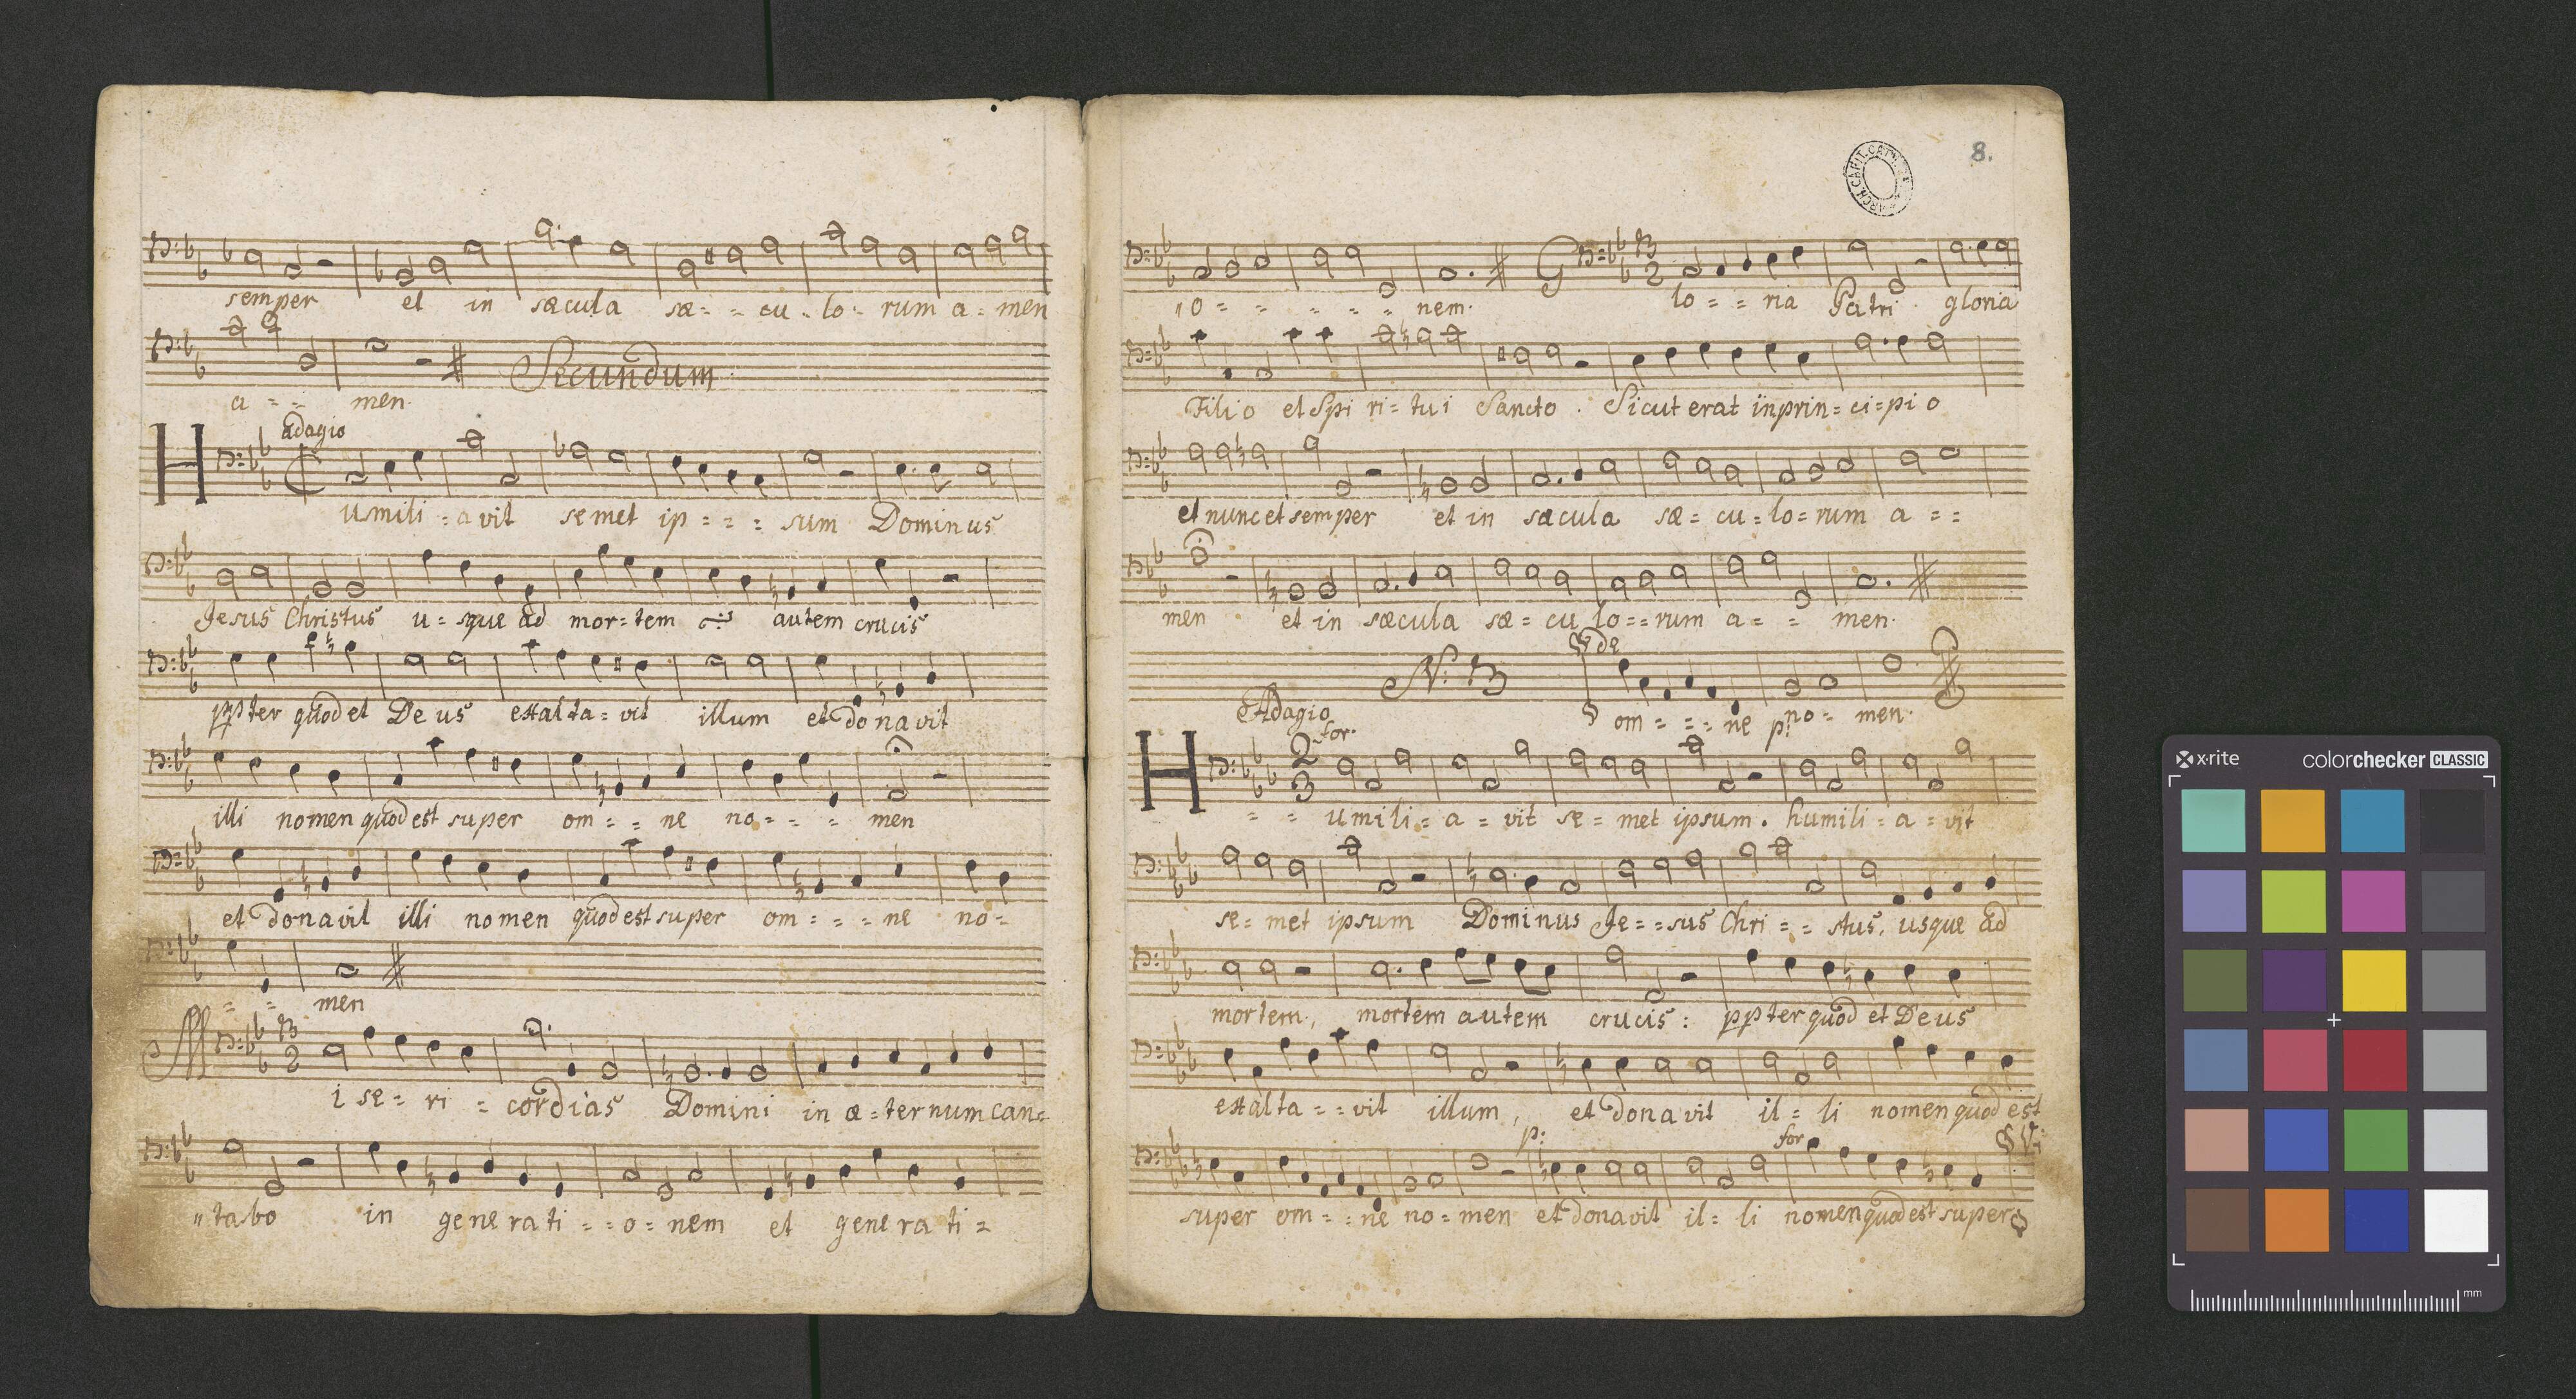 semper et in sæcula sæ - - cu - lo - rum a - men
a - - men.
Secundum
adagio
Humili - a vit semet ip - - - sum Dominus
Jesus Christus u - sque ad mor - tem autem crucis
ppter quod et Deus exalta - vit illum et donavit
illi nomen quod est super om - - ne no - - - men
et donavit illi nomen quod est super om - - - ne no -
- - men
Mise - ri - cordias Domini in æ - ternum can -
3
2
" tabo in generati - - o - nem et generati -
8.
ARCH. CAPIT. CATH.
" o - - - - - nem. Glo - - ria Patri. gloria
3
2
Filio et Spiri - tui Sancto. Sicut erat in prin - ci - pio
et nunc et semper et in sæcula sæ - cu - lo - rum a - -
men et in sæcula sæ - cu lo - - rum a - - men.
N: 3
de
om - - - ne no - men.
p:
Adagio
for.
2
3
H - - umili - a - vit se - met ipsum. humili - a - vit
se - met ipsum Dominus Je - - sus Chri - - stus, usque ad
mortem, mortem autem crucis: ppter quod et Deus
exalta - - vit illum, et donavit il - li nomen quod est
p:
for
super om - - ne no - men et donavit il - li nomen quod est super
x-rite colorchecker CLASSIC
mm